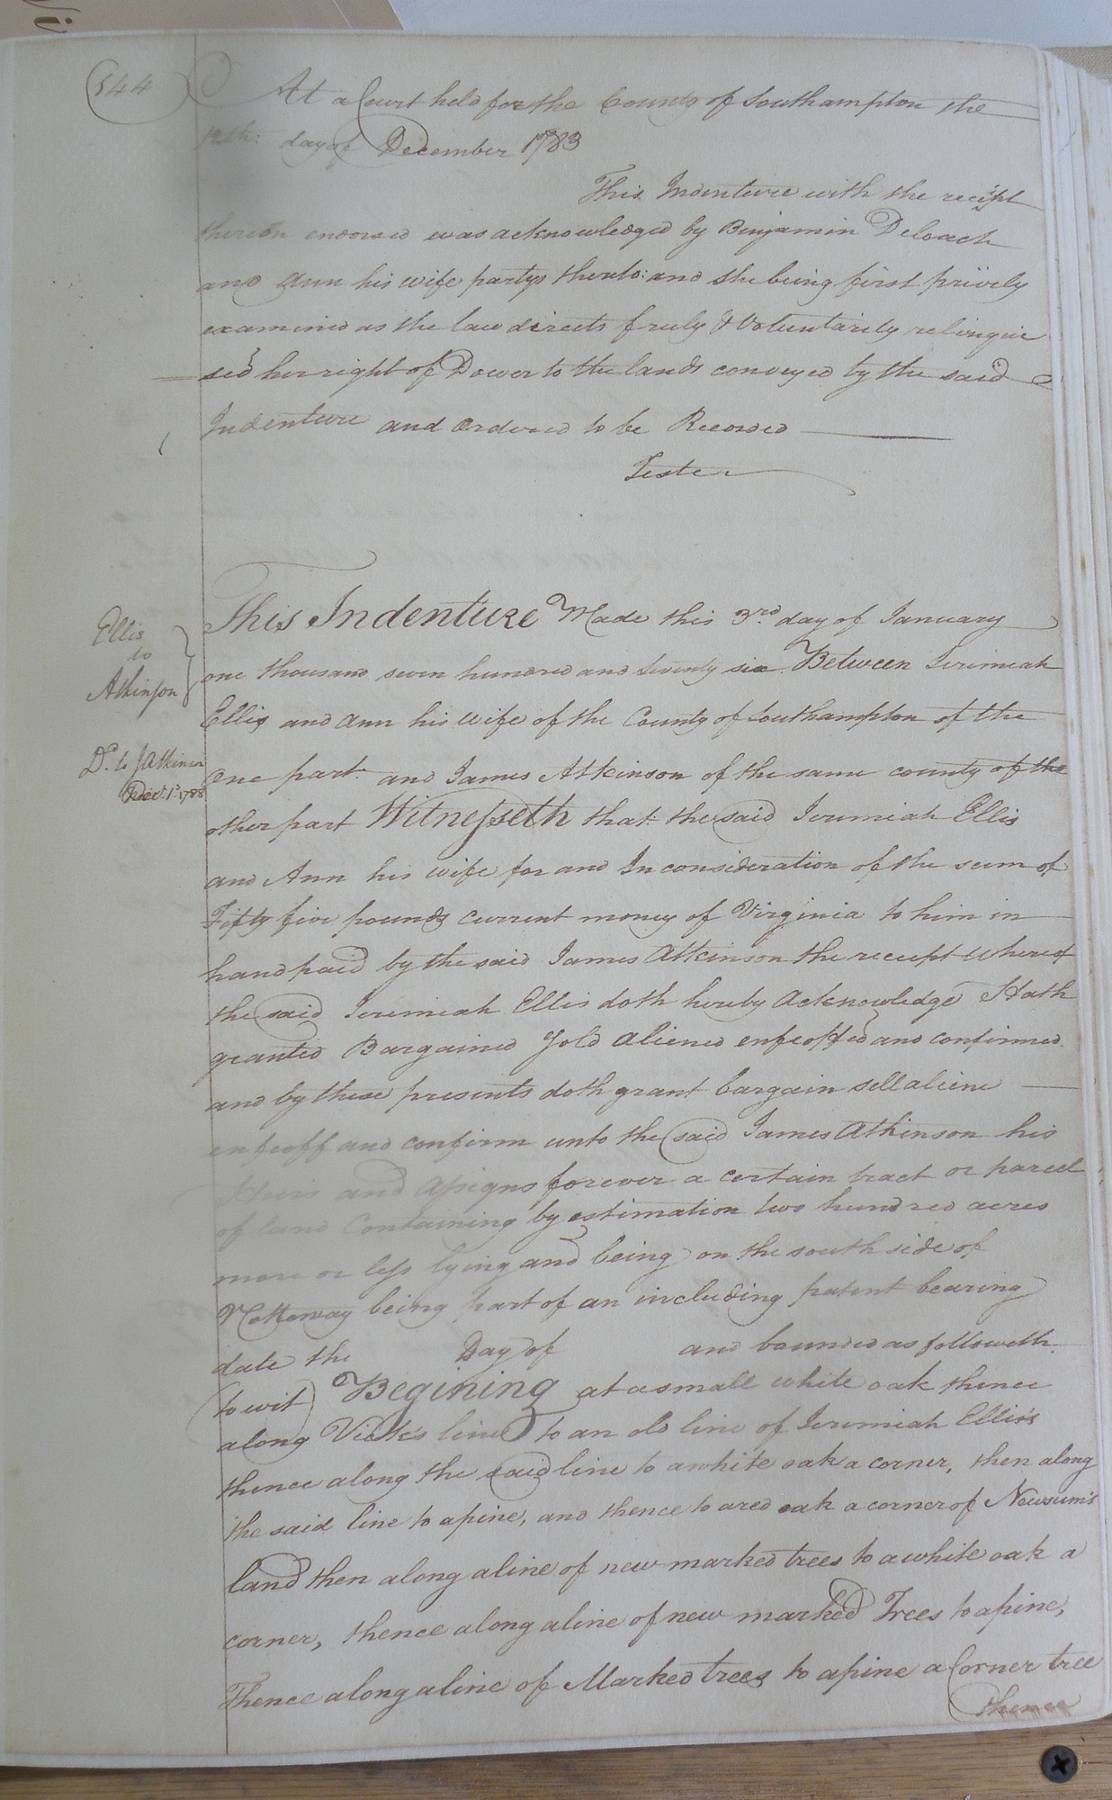 544
At a Court held for the County of Southampton the
day of December 1783
This Indenture with the receipt
thereon endorsed was acknowledged by Binjamin Deloach
and Ann his wife partys thereto: and she being first privily
examined as the law directs freely & Voluntarily relinquie
sed her right of Dower to the lands conveyed by the said
Indenture and Ordered to be Recorded
Teste
Ellis
to
Atkinson
This Indenture Made this 3rd day of January
one thousand seven hundred and seventy six Between Jerimiah
Ellis and Ann his wife of the County of Southampton of the
Dd. to J Atkinson
1st 1788
One part and James Atkinson of the same county of the
other part Witnesseth that the said Jerimiah Ellis
and Ann his wife for and In consideration of the sum of
Fifty five pounds current money of Virginia to him in
hand paid by the said James Atkinson the receipt whereof
the said Jerimiah Ellis doth hereby Acknowledge Hath
granted Bargained Sold aliened enfeoffed and confirmed
and by these presents doth grant bargain sell aliene
enfeoff and confirm unto the said James Atkinson his
Heirs and Assigns forever a certain tract or parcel
of land Containing by estimation two hundred acres
more or less lying and being on the south side of
Nottoway being part of an including patent bearing
date the Day of and bounded as followeth
(to wit) Begining at a small white oak thence
along Vick's line to an old line of Jerimiah Ellis's
thence along the said line to a white oak a corner, then along
the said line to a pine, and thence to a red oak a corner of Newsum's
land then along a line of new marked trees to a white oak a
corner, thence along a line of new marked Trees to a pine,
Thence along a line of Marked trees to a pine a Corner tree
thence